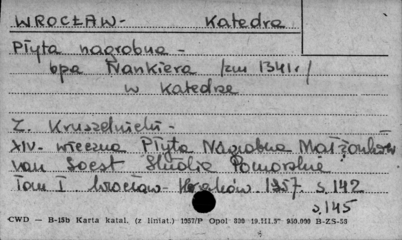 WROCŁAW - Katedra
Płyta nagrobna -
bpa Nankiera /zm 1341r/
w Katedrze
Z. Kruszelnicki -
XIV-wieczna Płyta Nagrobna Małżonków
van Soest Studia Pomorskie
Tom I Wrocław-Kraków 1957 s. 142
s. 145
CWD — B-15b Karta katal. (z liniat.) 1957/P Opol B-ZS-55